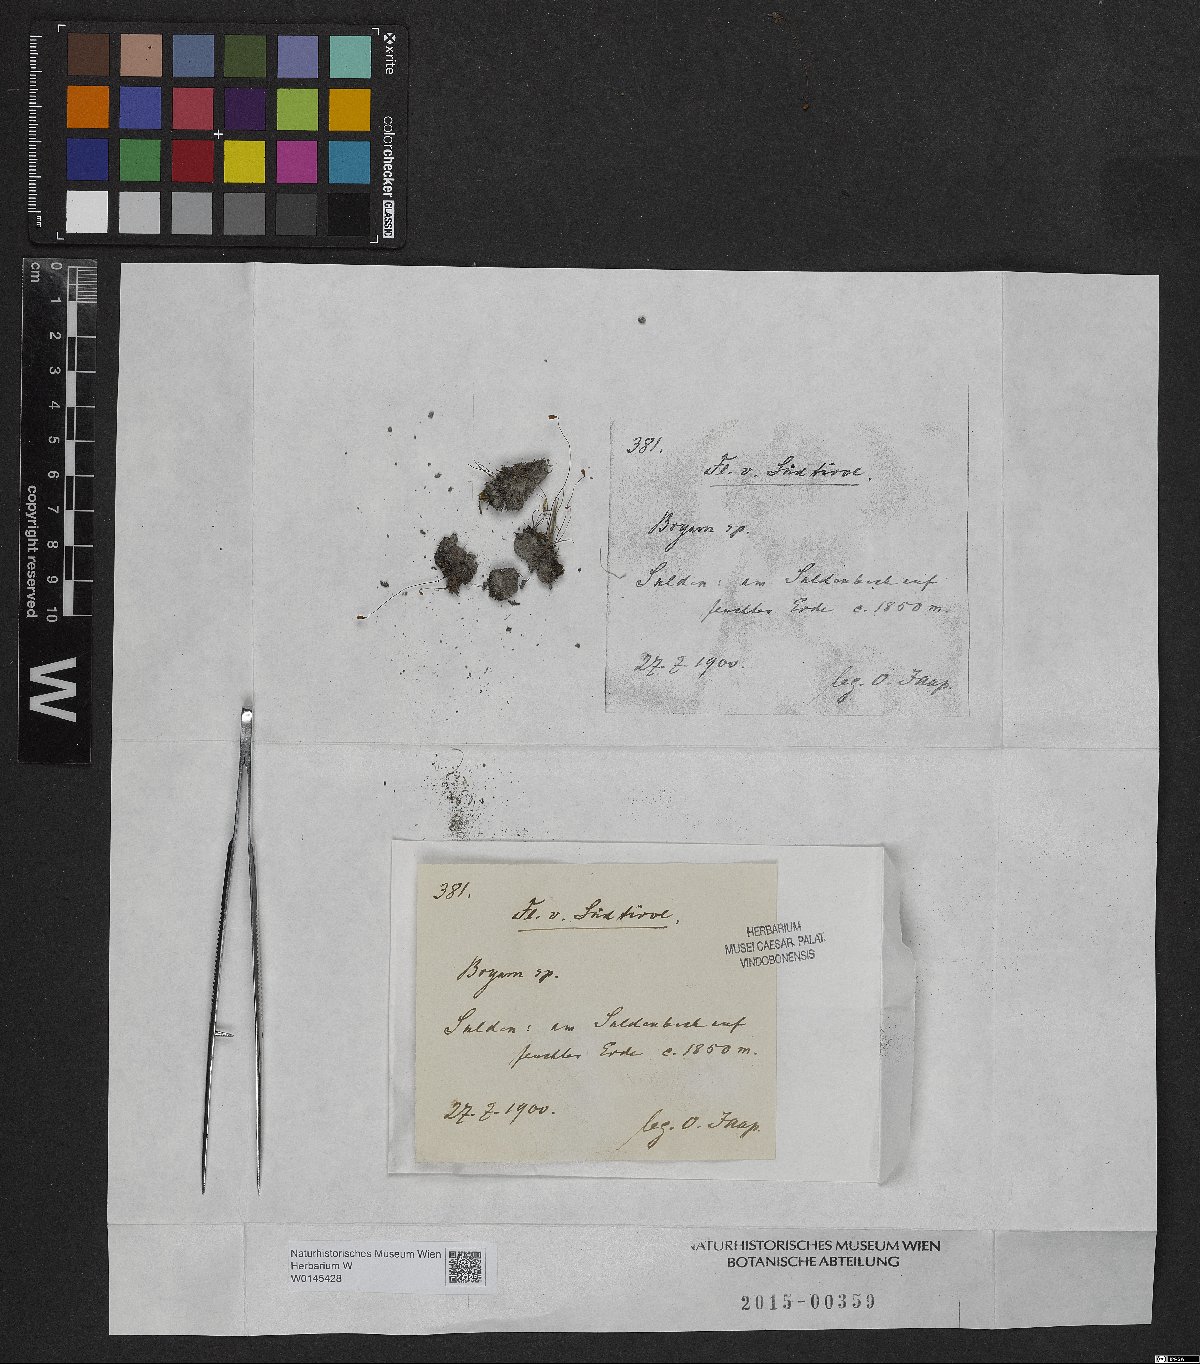 x-rite
colorchecker CLASSIC
mm
cm
0 1 2 3 4 5 6 7 8 9 10
copyright reserved
W
381.
Fl. v. Südtirol.
Bryum sp.
Sulden: am Suldenbach auf
feuchter Erde c. 1850 m.
27. 7. 1900.
leg. O. Jaap.
381.
Fl. v. Südtirol.
Bryum sp.
Sulden: am Suldenbach auf
feuchter Erde c. 1850 m.
27. 7. 1900.
leg. O. Jaap.
HERBARIUM
MUSEI CAESAR. PALAT.
VINDOBONENSIS
Naturhistorisches Museum Wien
Herbarium W
W0145428
NATURHISTORISCHES MUSEUM WIEN
BOTANISCHE ABTEILUNG
2015-00359